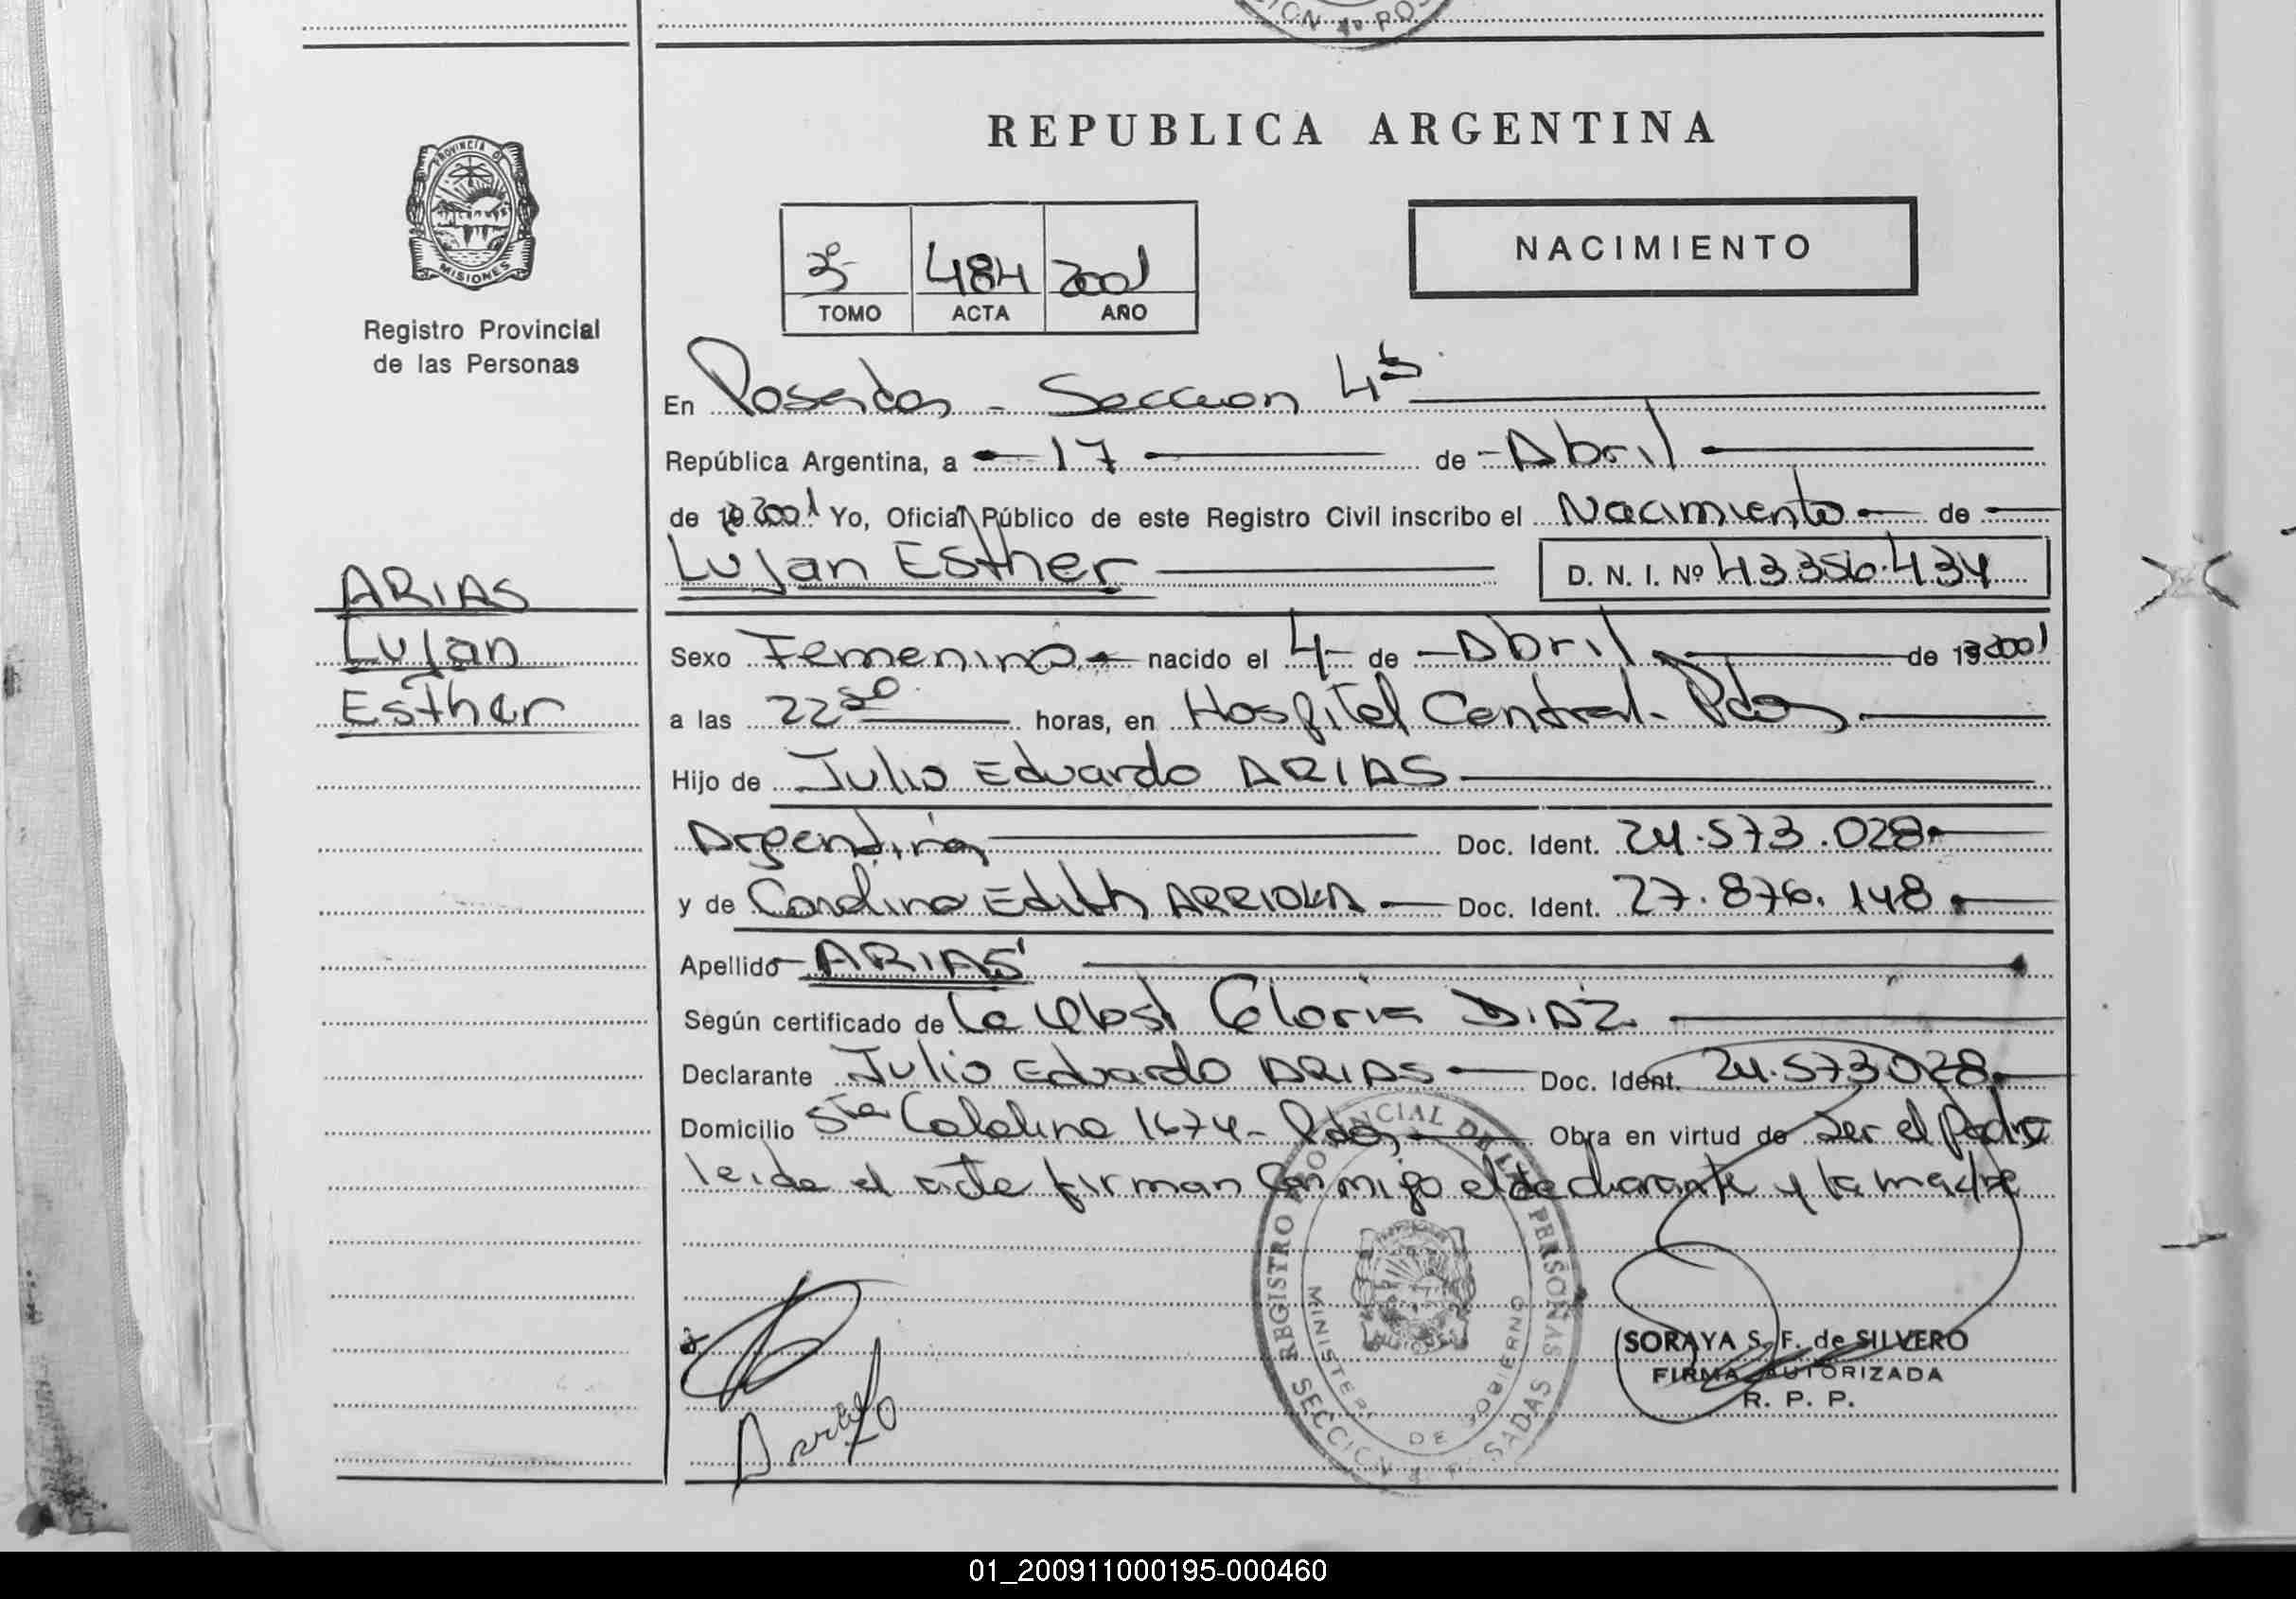 CION 4ta POS
REPUBLICA ARGENTINA
PROVINCIA DE
MISIONES
Registro Provincial
de las Personas
NACIMIENTO
3º 484 2001
TOMO ACTA AÑO
En Posadas - Seccion 4ta
República Argentina, a 17 de Abril
de 19 2001 Yo, Oficial Público de este Registro Civil inscribo el Nacimiento de
Lujan Esther D. N. I. Nº 43.356.434
ARIAS
Lujan
Esther
Sexo Femenino nacido el 4 de Abril de 19 2001
a las 22 50 horas, en Hospital Central - Pdas
Hijo de Julio Eduardo ARIAS
Argentina Doc. Ident. 24.573.028
y de Carolina Edith Doc. Ident. 27.876.148
Apellido ARIAS
Según certificado de La Obst Gloria DIAZ
Declarante Julio Eduardo ARIAS Doc. Ident. 24.573.028
Domicilio Sta Catalina 1674 - Pdas Obra en virtud de ser el Padre
leida el acta firman conmigo el declarante y la madre
REGISTRO PROVINCIAL DE LAS PERSONAS
MINISTERIO DE GOBIERNO
SECCION POSADAS
SORAYA S. F. de SILVERO
FIRMA AUTORIZADA
R. P. P.
01_200911000195-000460